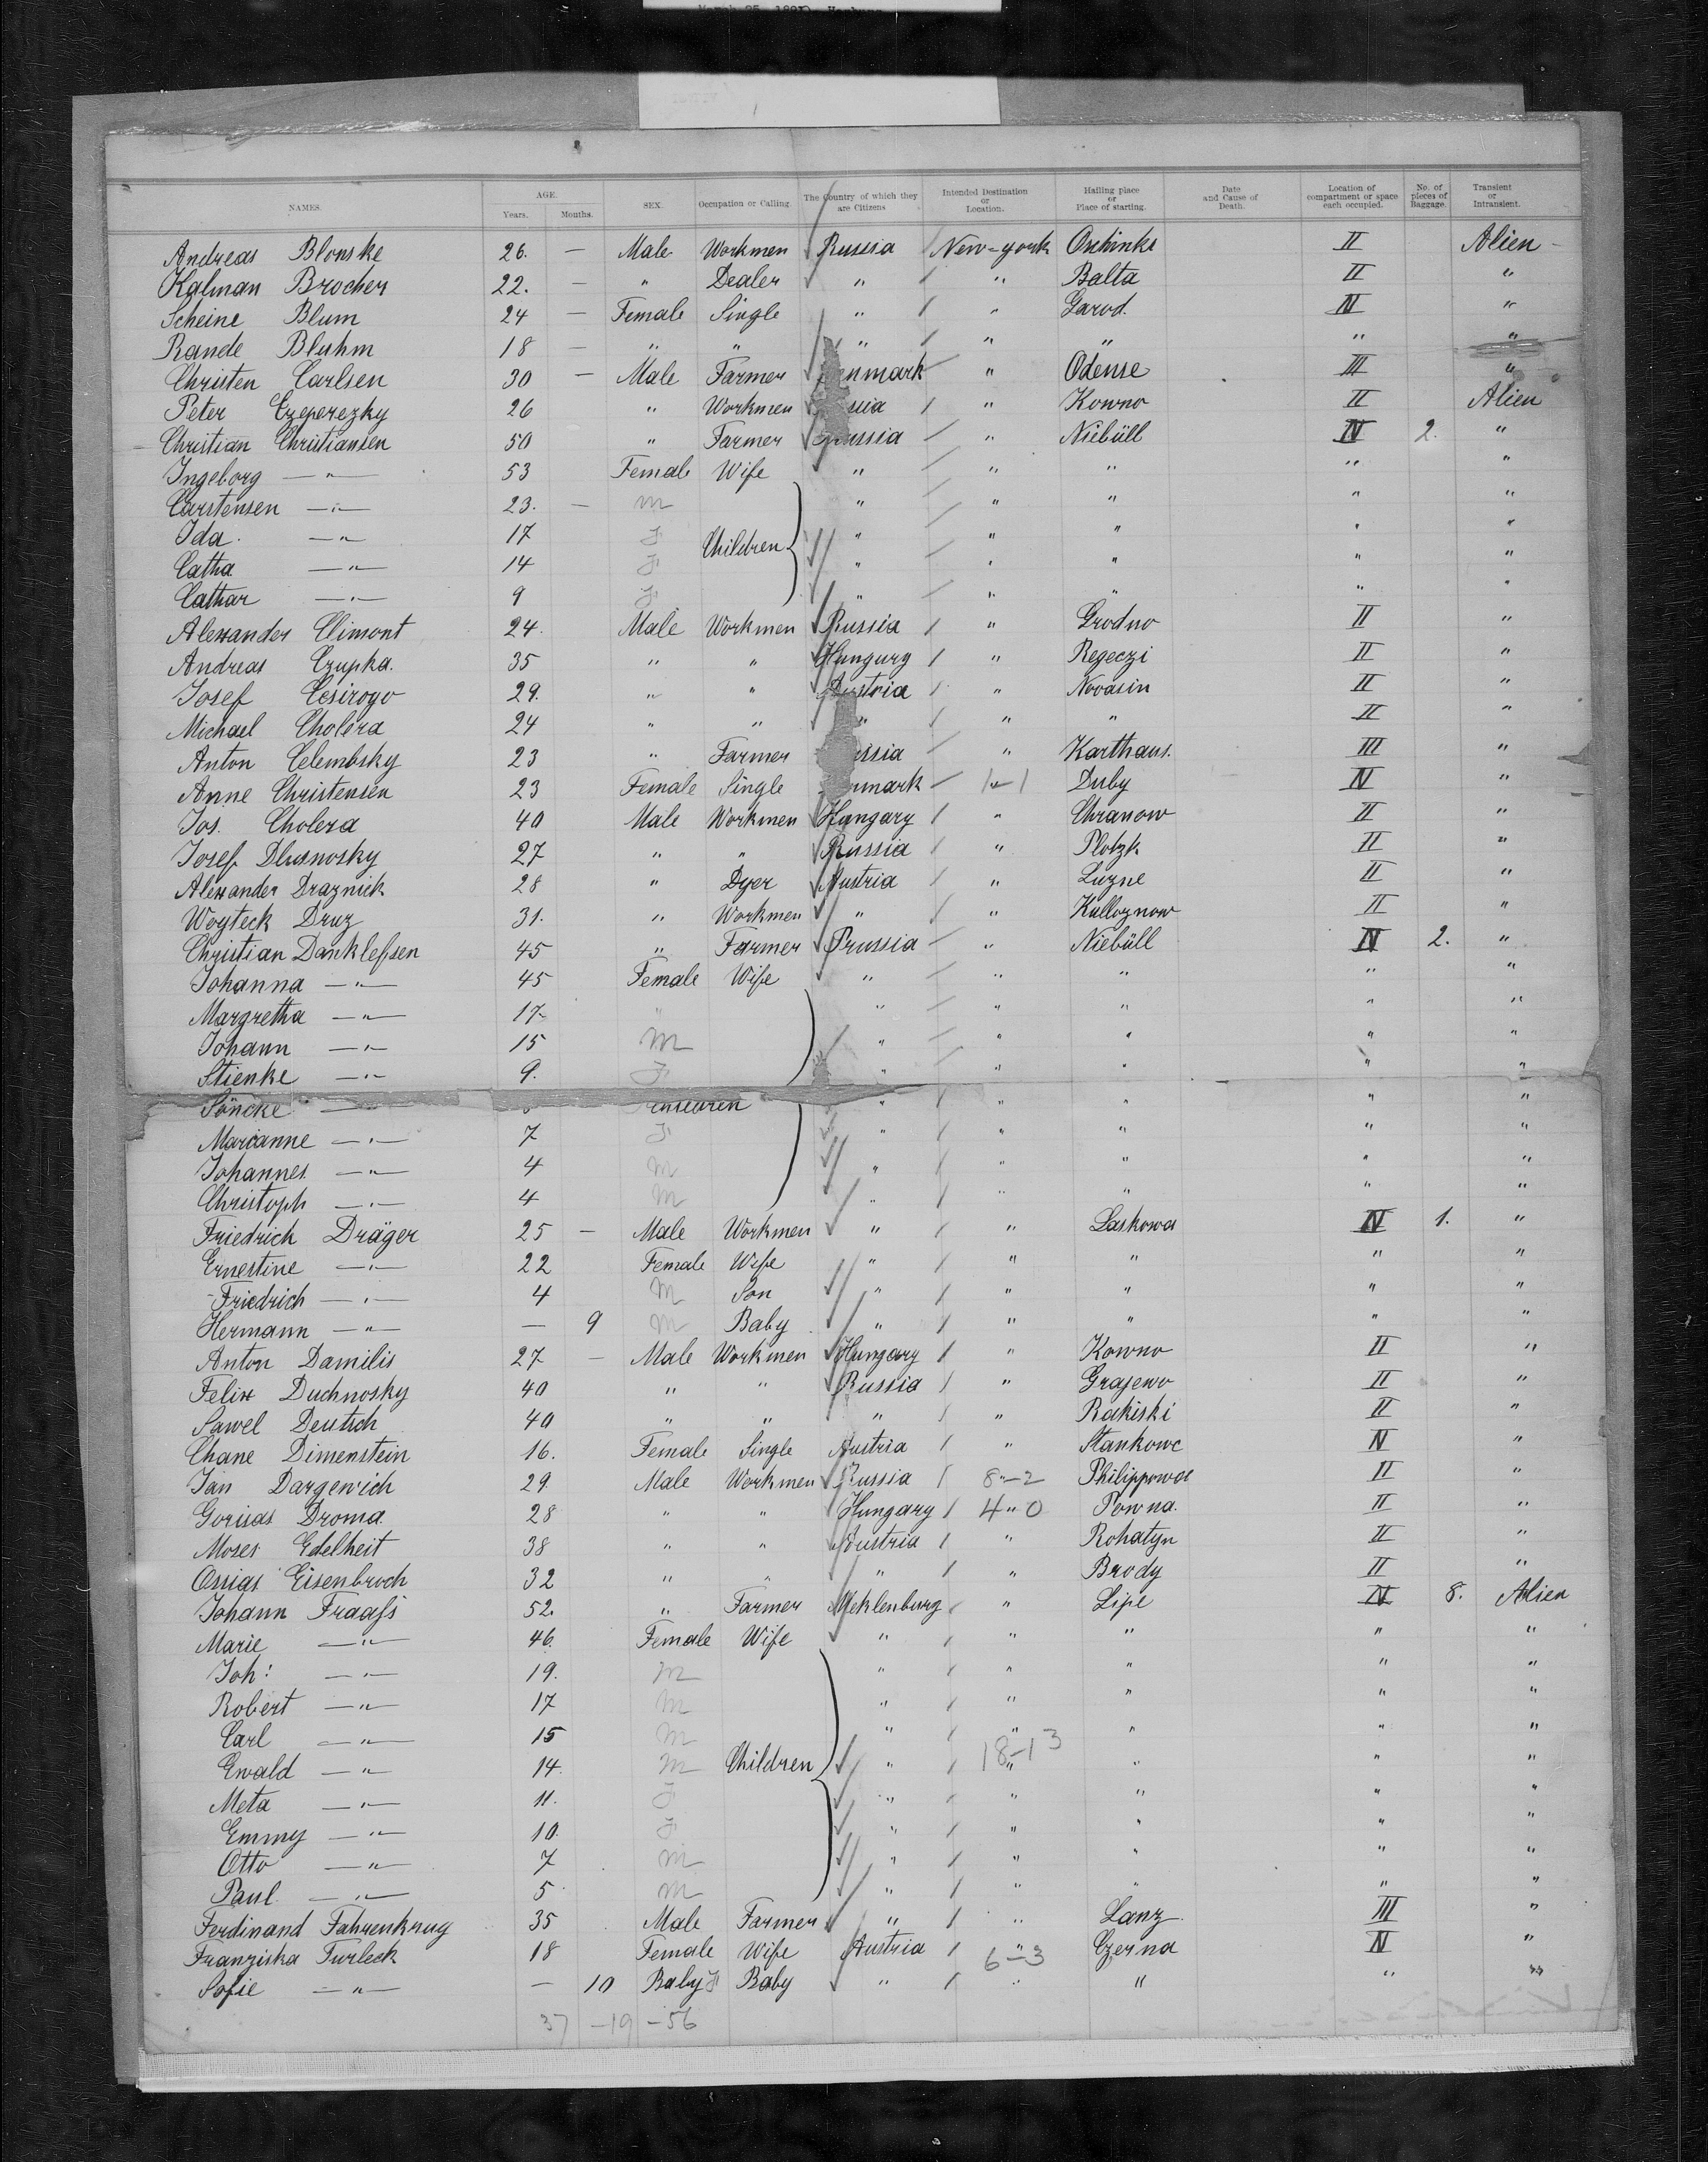 NAMES. AGE. Years. Months. SEX. Occupation or Calling. The Country of which they are Citizens Intended Destination or Location. Hailing place or Place of starting. Date and Cause of Death. Location of compartment or space each occupied. No. of pieces of Baggage. Transient or Intransient.
Andreas Blonske 26. — Male Workmen Russia New-york II Alien
Kalman Brocher 22. — " Dealer " " Balta II "
Scheine Blum 24 — Female Single " " Garod. IV "
Rande Bluhm 18 — " " " " " " "
Christen Carlsen 30 — Male Farmer " Odense III "
Peter Czeperezky 26 " Workmen " Kowno II Alien
Christian Christiansen 50 " Farmer " Niebüll IV 2. "
Ingeborg — " — 53 Female Wife " " " " "
Carstensen — " — 23. — m " " " " "
Ida. — " — 17 F Children " " " " "
Catha — " — 14 F " " " " "
Cathar — " — 9 F " " " " "
Alexander Climont 24. Male Workmen Russia " Grodno II "
Andreas Czupka. 35 " " Hungary " Regeczi II "
Josef Cesirogo 29. " " Austria " Novasin II "
Michael Cholera 24 " " " " " II "
Anton Celembsky 23 " Farmer " Karthaus. III "
Anne Christensen 23 Female Single 1-1 Duby IV "
Jos. Cholera 40 Male Workmen Hungary " Chranow II "
Josef Dlusnosky 27 " " Russia " Plotzk II "
Alexander Draznick 28 " Dyer Austria " Luzne II "
Woyteck Druz 31. " Workmen " " Kulloznow II "
Christian Danklefsen 45 " Farmer Prussia " Niebüll IV 2. "
Johanna — " — 45 Female Wife " " " " "
Margretha — " — 17 " " " " " "
Johann — " — 15 M " " " " "
Stienke — " — 9. F " " " " "
Söncke — " — " " " " "
Marianne — " — 7 F " " " " "
Johannes — " — 4 m " " " " "
Christoph — " — 4 m " " " " "
Friedrich Dräger 25 — Male Workmen " " Laskowa IV 1. "
Ernestine — " — 22 Female Wife " " " " "
Friedrich — " — 4 M Son " " " " "
Hermann — " — — 9 M Baby " " " " "
Anton Damilis 27 — Male Workmen Hungary " Kowno II "
Felix Duchnosky 40 " " Russia " Grajewo II "
Sawel Deutsch 40 " " " " Rakiski II "
Chane Dimenstein 16. Female Single Austria " Stankowc IV "
Jan Dargewich 29. Male Workmen Russia 8-2 Philippowa II "
Gorisas Droma 28 " " Hungary 4 " 0 Powna. II "
Moses Edelheit 38 " " Austria " Rohatyn II "
Ossias Eisenbroch 32 " " " " Brody II "
Johann Fraafs 52. " Farmer Meklenburg " Lipe IV 8. Alien
Marie — " — 46. Female Wife " " " " "
Joh: — " — 19. M " " " " "
Robert — " — 17 M " " " " "
Carl — " — 15 M " " " " "
Ewald — " — 14. M Children " 18-13 " " "
Meta — " — 11. F " " " " "
Emmy — " — 10. F " " " " "
Otto — " — 7 M " " " " "
Paul — " — 5 M " " " " "
Ferdinand Fahrenkrug 35 Male Farmer " " Lanz III "
Franziska Furleck 18 Female Wife Austria 6-3 Czerna IV "
Sofie — " — — 10 Baby F Baby " " " " "
37 -19 -56